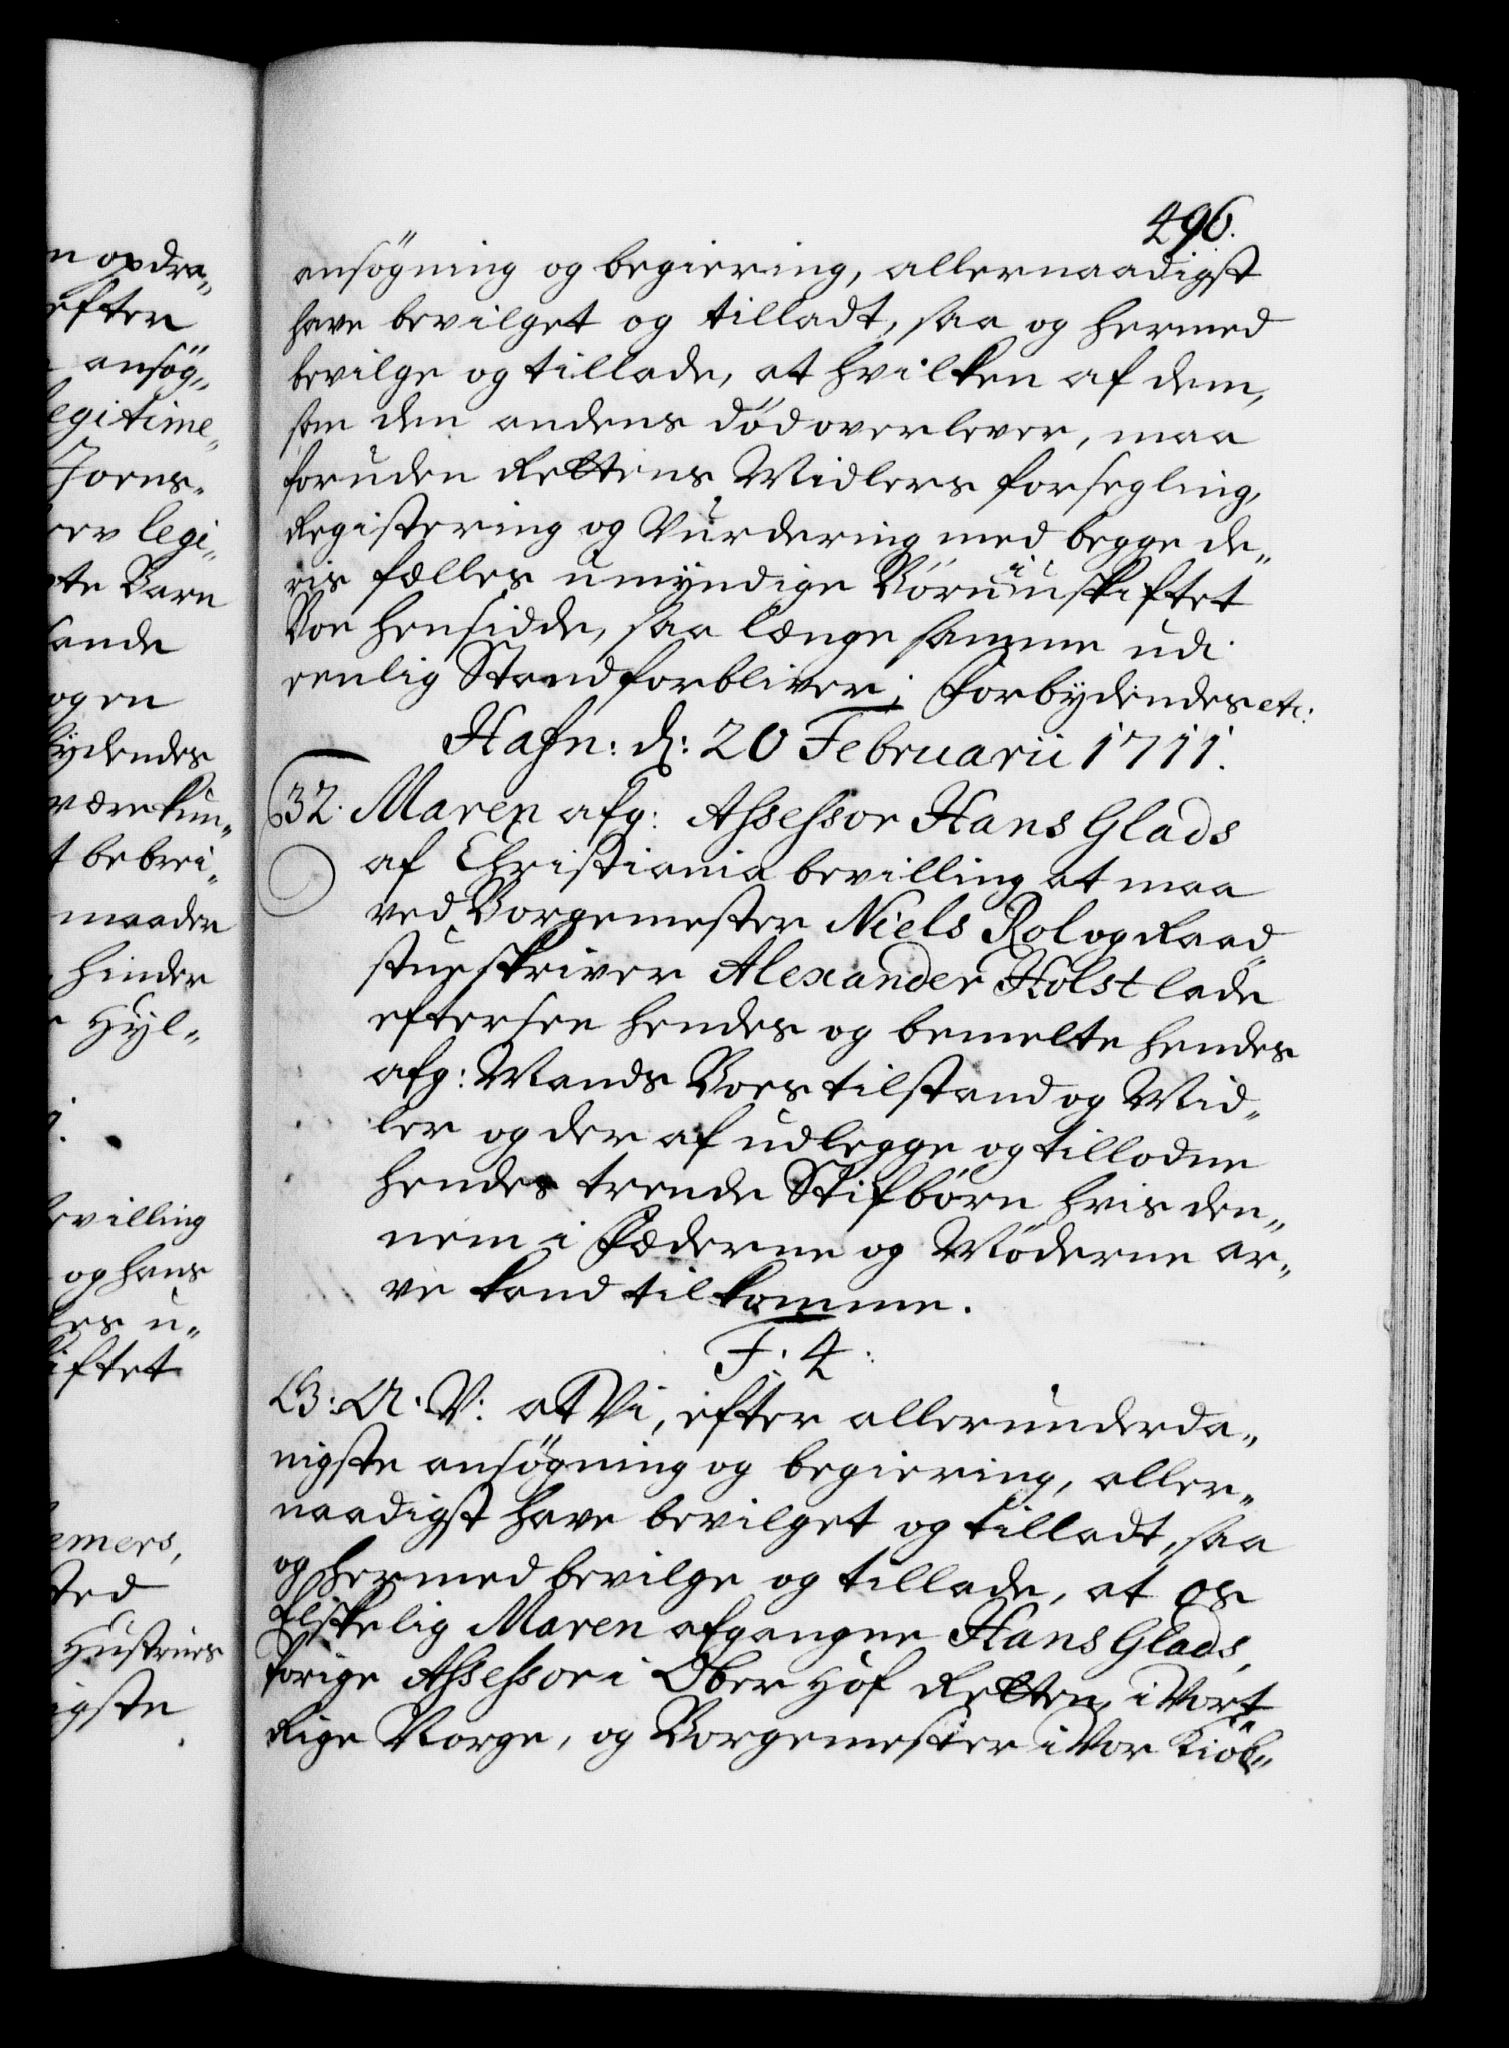 n opdra„
efter
ansög„
legitime„
Joens„
rev legi„
te Barn
sande
og en
bydendes
være kun„
t bebrei„
maader
hinder
Hyl„
bevilling
og hans
les u„
iftet
emers,
sted
Hustrues
igste
496.
ansögning og begiering, allernaadigst
have bevilget og tilladt, saa og hermed
bevilge og tillade, at hvilken af dem,
som den andens död overlever, maa
foruden Rettens Midlers forsegling,
Registering og Vurdering med begge de„
ris fælles umyndige Börn i uskiftet
Boe hensidde, saa længe samme udi
eenlig Stand forbliver; Forbydendes etc:
Hafn: d: 20 Februarii 1711.
32. Maren afg: Assessor Hans Glads
af Christiania bevilling at maa
ved Borgemester Niels Rol og Raad„
stueskriver Alexander Holst lade
eftersee hendes og bemelte hendes
afg: Mands Boes tilstand og Mid„
ler og der af udlegge og tillodne
hendes trende Stifbörn hvis den„
nem i Fæderne og Möderne ar„
ve kand tilkomme.
F: 4:
G: A: V: at Vi, efter allerunderda„
nigste ansögning og begiering, aller„
naadigst have bevilget og tilladt, saa
og hermed bevilge og tillade, at os
Elskelig Maren afgangne Hans Glads,
forige Assessor i Ober Hof Retten i Vort
Rige Norge, og Borgemester i Vor Kiöb„